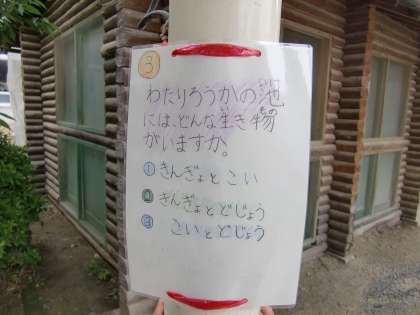 ③
わたりろうかの池
には、どんな生き物
がいますか。
①きんぎょとこい
②きんぎょとどじょう
③こいとどじょう